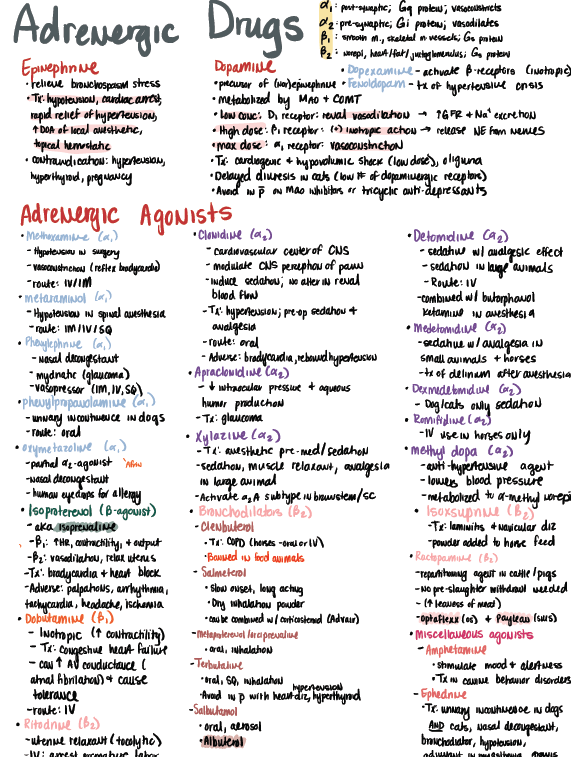 Adrenergic Drugs
α1: post-synaptic; Gq protein; vasoconstricts
α2: pre-synaptic; Gi protein; vasodilates
β1: smooth m., skeletal m vessels; Gs protein
β2: norepi, heart/fat/juxtaglomerulus; Gs protein
Epinephrine
• relieve bronchospasm stress
• Tx: hypotension, cardiac arrest,
rapid relief of hypertension,
↑ DOA of local anesthetic,
topical hemostatic
• contraindication: hypertension,
hyperthyroid, pregnancy
Dopamine
• precursor of (nor)epinephrine
• metabolized by MAO + COMT
• Low conc: D1 receptor: renal vasodilation → ↑GFR + Na+ excretion
• High dose: β1 receptor: (+) inotropic action → release NE from nerves
• max dose: α1 receptor: vasoconstriction
• Tx: cardiogenic + hypovolumic shock (low dose), oliguria
• Delayed diuresis in cats (low # of dopaminergic receptors)
• Avoid in p on MAO inhibitors or tricyclic anti-depressants
• Dopexamine - activate β-receptors (inotropic)
• Fenoldopam - tx of hypertensive crisis
Adrenergic Agonists
• Methoxamine (α1)
- Hypotension in surgery
- vasoconstriction (reflex bradycardia)
- route: IV/IM
• metaraminol (α1)
- Hypotension in spinal anesthesia
- route: IM/IV/SQ
• Phenylephrine (α1)
- nasal decongestant
- mydriatic (glaucoma)
- vasopressor (IM, IV, SQ)
• phenylpropanolamine (α1)
- urinary incontinence in dogs
- route: oral
• oxymetazoline (α1)
- partial α2-agonist
- nasal decongestant
- human eyedrops for allergy
• Isoproterenol (β-agonist)
- aka isoprenaline
- β1: ↑HR, contractility, + output
- β2: vasodilation, relax uterus
- Tx: bradycardia + heart block
- Adverse: palpations, arrhythmia,
tachycardia, headache, ischemia
• Dobutamine (β1)
- Inotropic (↑ contractility)
- Tx: congestive heart failure
- can ↑ AV conductance (
atrial fibrilation) + cause
tolerance
- route: IV
• Ritodrine (β2)
- uterine relaxant (tocolytic)
- IV: arrest premature labor
• Clonidine (α2)
- cardiovascular center of CNS
- modulate CNS perception of pain
- induce sedation; no alter in renal
blood flow
- Tx: hypertension; pre-op sedation +
analgesia
- route: oral
- Adverse: bradycardia, rebound hypertension
• Apraclonidine (α2)
- ↓ intraocular pressive + aqueous
humor production
- Tx: glaucoma
• Xylazine (α2)
- Tx: anesthetic pre-med/sedation
- sedation, muscle relaxant, analgesia
in large animal
- Activate α2A subtype in brainstem/SC
• Bronchodilators (β2)
- Clenbuterol
• Tx: COPD (horses - oral or IV)
• Banned in food animals
- Salmeterol
• Slow onset, long acting
• Dry inhalation powder
• can be combined w/ corticosteroid (Advair)
- Metaproterenol /orciprenaline
• oral, inhalation
- Terbutaline
• oral, SQ, inhalation
• Avoid in p with heart diz, hypertension, hyperthyroid
- Salbutamol
• oral, aerosol
• Albuterol
• Detomidine (α2)
- sedative w/ analgesic effect
- sedation in large animals
- Route: IV
- combined w/ butorphanol
ketamine in anesthesia
• Medetomidine (α2)
- sedative w/ analgesia in
small animals + horses
- tx of delirium after anesthesia
• Dexmedetomidine (α2)
- Dog/cats only sedation
• Romifidine (α2)
- IV use in horses only
• methyl dopa (α2)
- anti-hypertensive agent
- lowers blood pressure
- metabolized to α-methyl norepi
• Isoxsuprine (β2)
- Tx: laminitis + navicular diz
- powder added to horse feed
• Ractopamine (β2)
- repartitioning agent in cattle/pigs
- No pre-slaughter withdrawl needed
- (↑ leaness of meat)
- Optaflexx (os) + Paylean (sus)
• Miscellaneous agonists
- Amphetamine
• stimulate mood + alertness
• Tx in canine behavior disorders
- Ephedrine
• Tx: urinary incontinence in dogs
AND cats, nasal decongestant,
bronchodilator, hypotension,